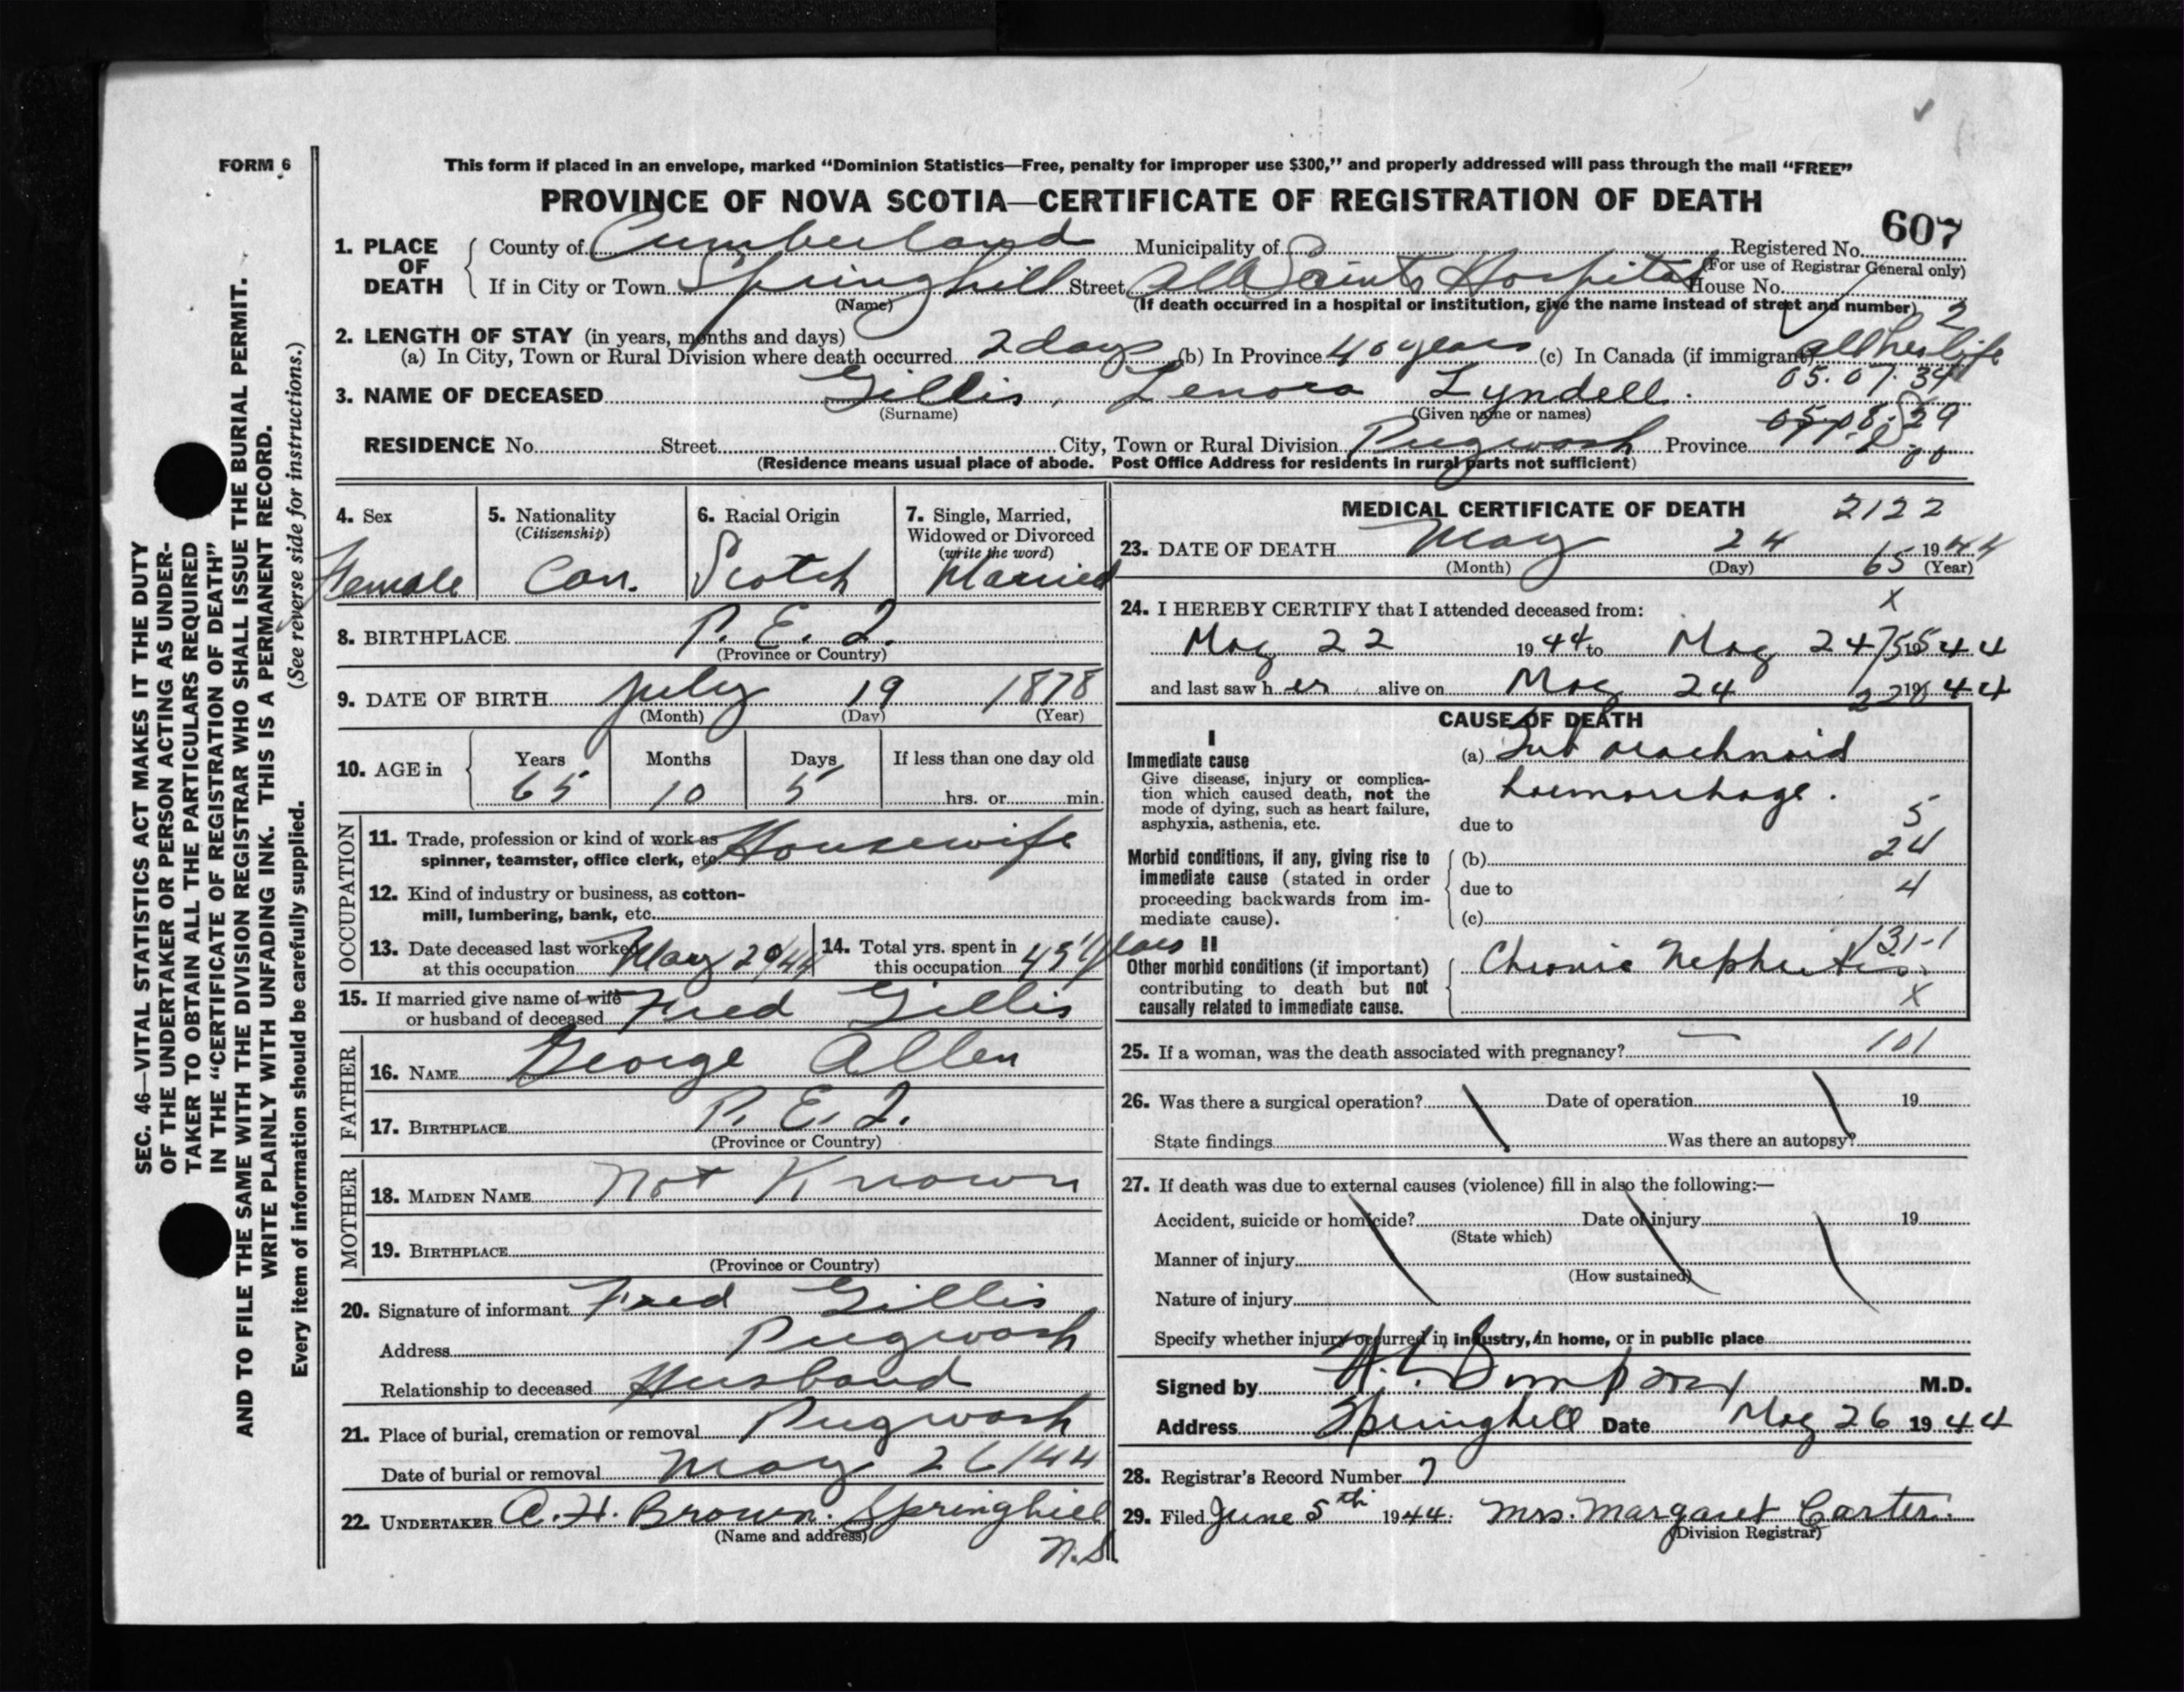 FORM 6
This form if placed in an envelope, marked “Dominion Statistics—Free, penalty for improper use $300,” and properly addressed will pass through the mail “FREE”
PROVINCE OF NOVA SCOTIA—CERTIFICATE OF REGISTRATION OF DEATH
607
1. PLACE OF DEATH County of Cumberland Municipality of Registered No.
(For use of Registrar General only)
If in City or Town Springhill Street All Saints Hospital House No.
(Name) (If death occurred in a hospital or institution, give the name instead of street and number) 2
2. LENGTH OF STAY (in years, months and days)
(a) In City, Town or Rural Division where death occurred 2 days (b) In Province 40 years (c) In Canada (if immigrant) all her life
05.07.34
3. NAME OF DECEASED Gillis, Lenora Lyndell.
(Surname) (Given name or names)
05.08.29
RESIDENCE No. Street City, Town or Rural Division Pugwash Province
00
(Residence means usual place of abode. Post Office Address for residents in rural parts not sufficient)
4. Sex Female
5. Nationality (Citizenship) Can.
6. Racial Origin Scotch
7. Single, Married, Widowed or Divorced (write the word) Married
8. BIRTHPLACE P. E. I.
(Province or Country)
9. DATE OF BIRTH July 19 1878
(Month) (Day) (Year)
10. AGE in Years Months Days If less than one day old
65 10 5 hrs. or min.
OCCUPATION
11. Trade, profession or kind of work as
spinner, teamster, office clerk, etc. Housewife
12. Kind of industry or business, as cotton-
mill, lumbering, bank, etc.
13. Date deceased last worked
at this occupation May 20/44
14. Total yrs. spent in
this occupation 45 years
15. If married give name of wife
or husband of deceased Fred Gillis
FATHER
16. NAME George Allen
17. BIRTHPLACE P. E. I.
(Province or Country)
MOTHER
18. MAIDEN NAME Not Known
19. BIRTHPLACE
(Province or Country)
20. Signature of informant Fred Gillis
Address Pugwash
Relationship to deceased Husband
21. Place of burial, cremation or removal Pugwash
Date of burial or removal May 26/44
22. UNDERTAKER A. H. Brown. Springhill
(Name and address)
N.S.
MEDICAL CERTIFICATE OF DEATH 2122
23. DATE OF DEATH May 24 1944
(Month) (Day) 65 (Year)
X
24. I HEREBY CERTIFY that I attended deceased from:
May 22 1944 to May 24 1944
and last saw her alive on May 24 1944
CAUSE OF DEATH
I
Immediate cause
Give disease, injury or complica-
tion which caused death, not the
mode of dying, such as heart failure,
asphyxia, asthenia, etc.
(a) Sub arachnoid
haemorrhage.
due to 5
Morbid conditions, if any, giving rise to
immediate cause (stated in order
proceeding backwards from im-
mediate cause).
(b) 24
due to 4
(c)
II
Other morbid conditions (if important)
contributing to death but not
causally related to immediate cause.
131-1
Chronic Nephritis.
X
25. If a woman, was the death associated with pregnancy? — 101
26. Was there a surgical operation? Date of operation 19
State findings Was there an autopsy?
27. If death was due to external causes (violence) fill in also the following:—
Accident, suicide or homicide? Date of injury 19
(State which)
Manner of injury
(How sustained)
Nature of injury
Specify whether injury occurred in industry, in home, or in public place
Signed by M.D.
Address Springhill Date May 26 1944
28. Registrar's Record Number 7
29. Filed June 5th 1944. Mrs. Margaret Carter.
(Division Registrar)
SEC. 46—VITAL STATISTICS ACT MAKES IT THE DUTY
OF THE UNDERTAKER OR PERSON ACTING AS UNDER-
TAKER TO OBTAIN ALL THE PARTICULARS REQUIRED
IN THE “CERTIFICATE OF REGISTRATION OF DEATH”
AND TO FILE THE SAME WITH THE DIVISION REGISTRAR WHO SHALL ISSUE THE BURIAL PERMIT.
WRITE PLAINLY WITH UNFADING INK. THIS IS A PERMANENT RECORD.
Every item of information should be carefully supplied. (See reverse side for instructions.)